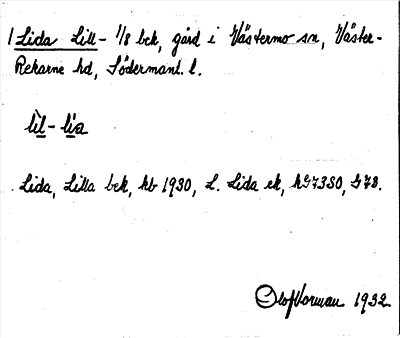 / Lida Lill- 1/8 bek, gård i Västermo sn, Väster-
Rekarne hd, Södermanl. l.
lìl-lia
Lida, Lilla bek, hb 1930, L. Lida ek,
Olof Norman 1932